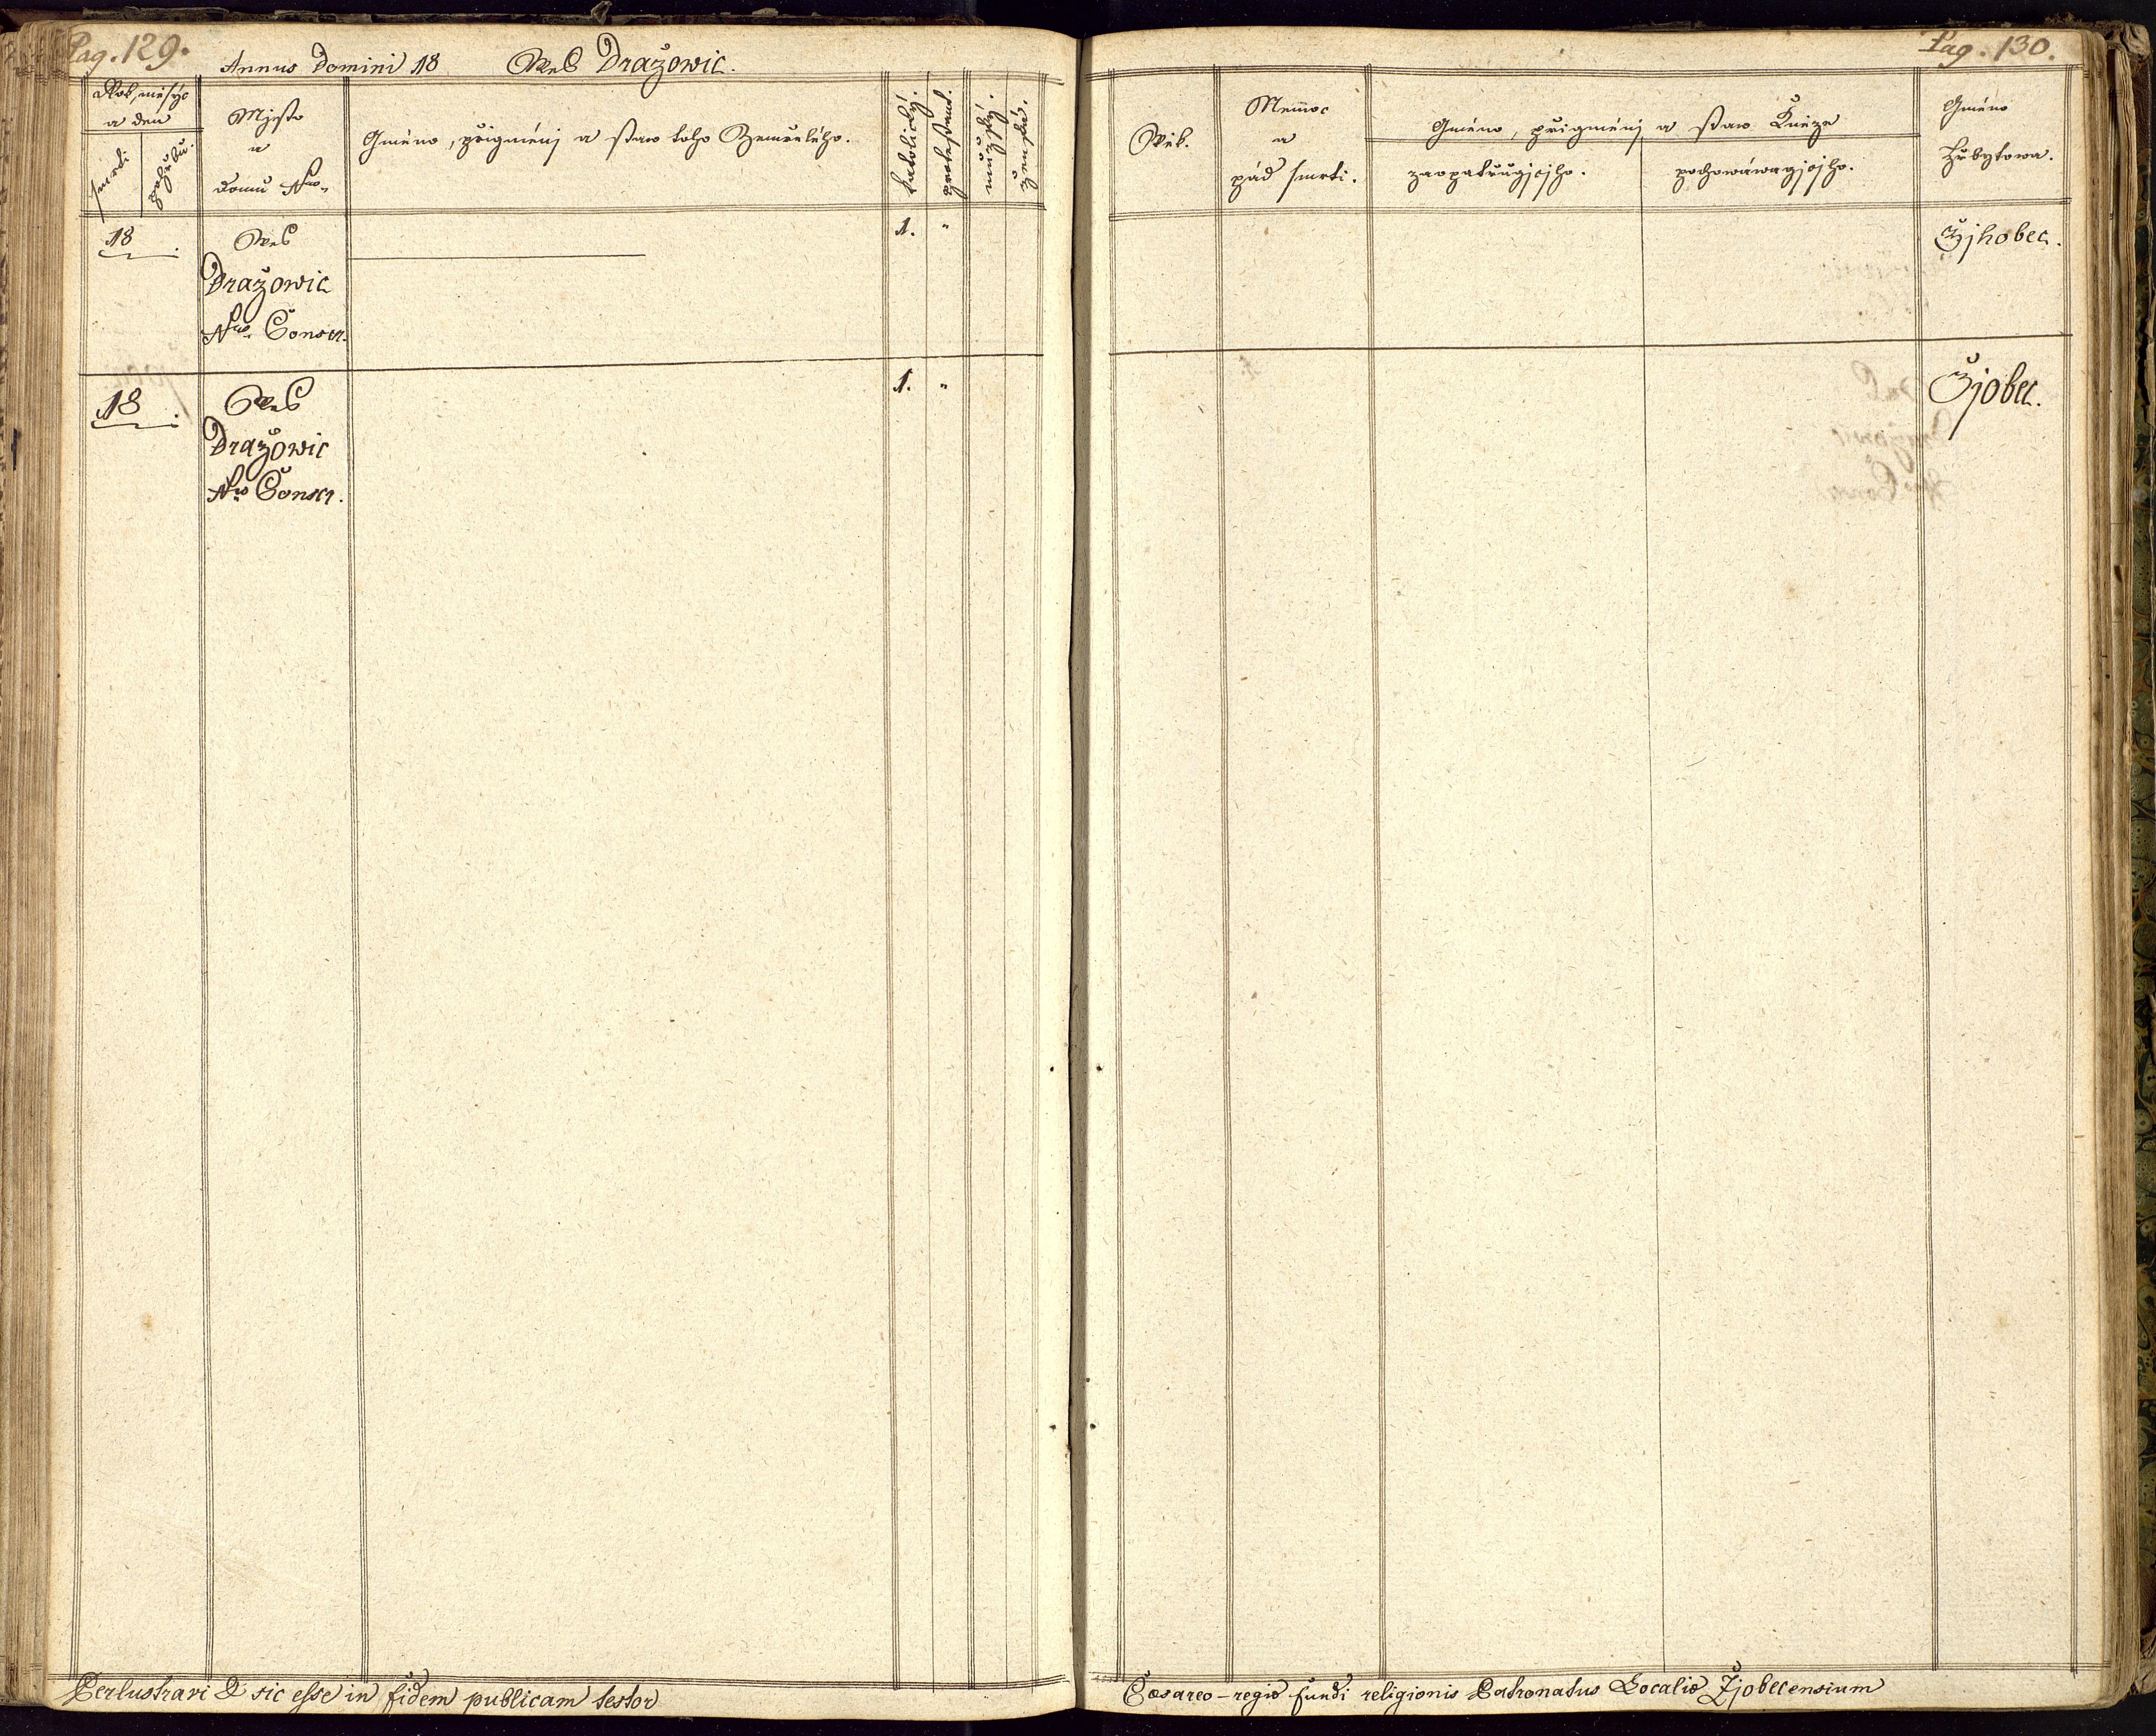 Pag. 129.
Annus Domini 18 Wes Dražowic.
Rok, měsýc
a den
smrti
pohřbu.
Mjsto
a
domu Nro.
Gméno, přigménj a staw toho Zemřelého.
katolický.
protestant.
mužský.
ženský.
18 .
Wes
Dražowic
Nro. Conscr.
1. "
18 .
Wes
Dražowic
Nro Conscr.
1. "
Perlustravi & sic esse in fidem publicam testor
Pag. 130.
Wěk.
Nemoc
a
pád smrti.
Gméno, přigménj a staw Kněze
zaopatřugjcjho.
pochowáwagjcjho.
Gméno
Hřbytowa.
Žjhobec.
Žjobec.
Cæsareo-regio fundi religionis Patronatus Localiæ Žjobecensium